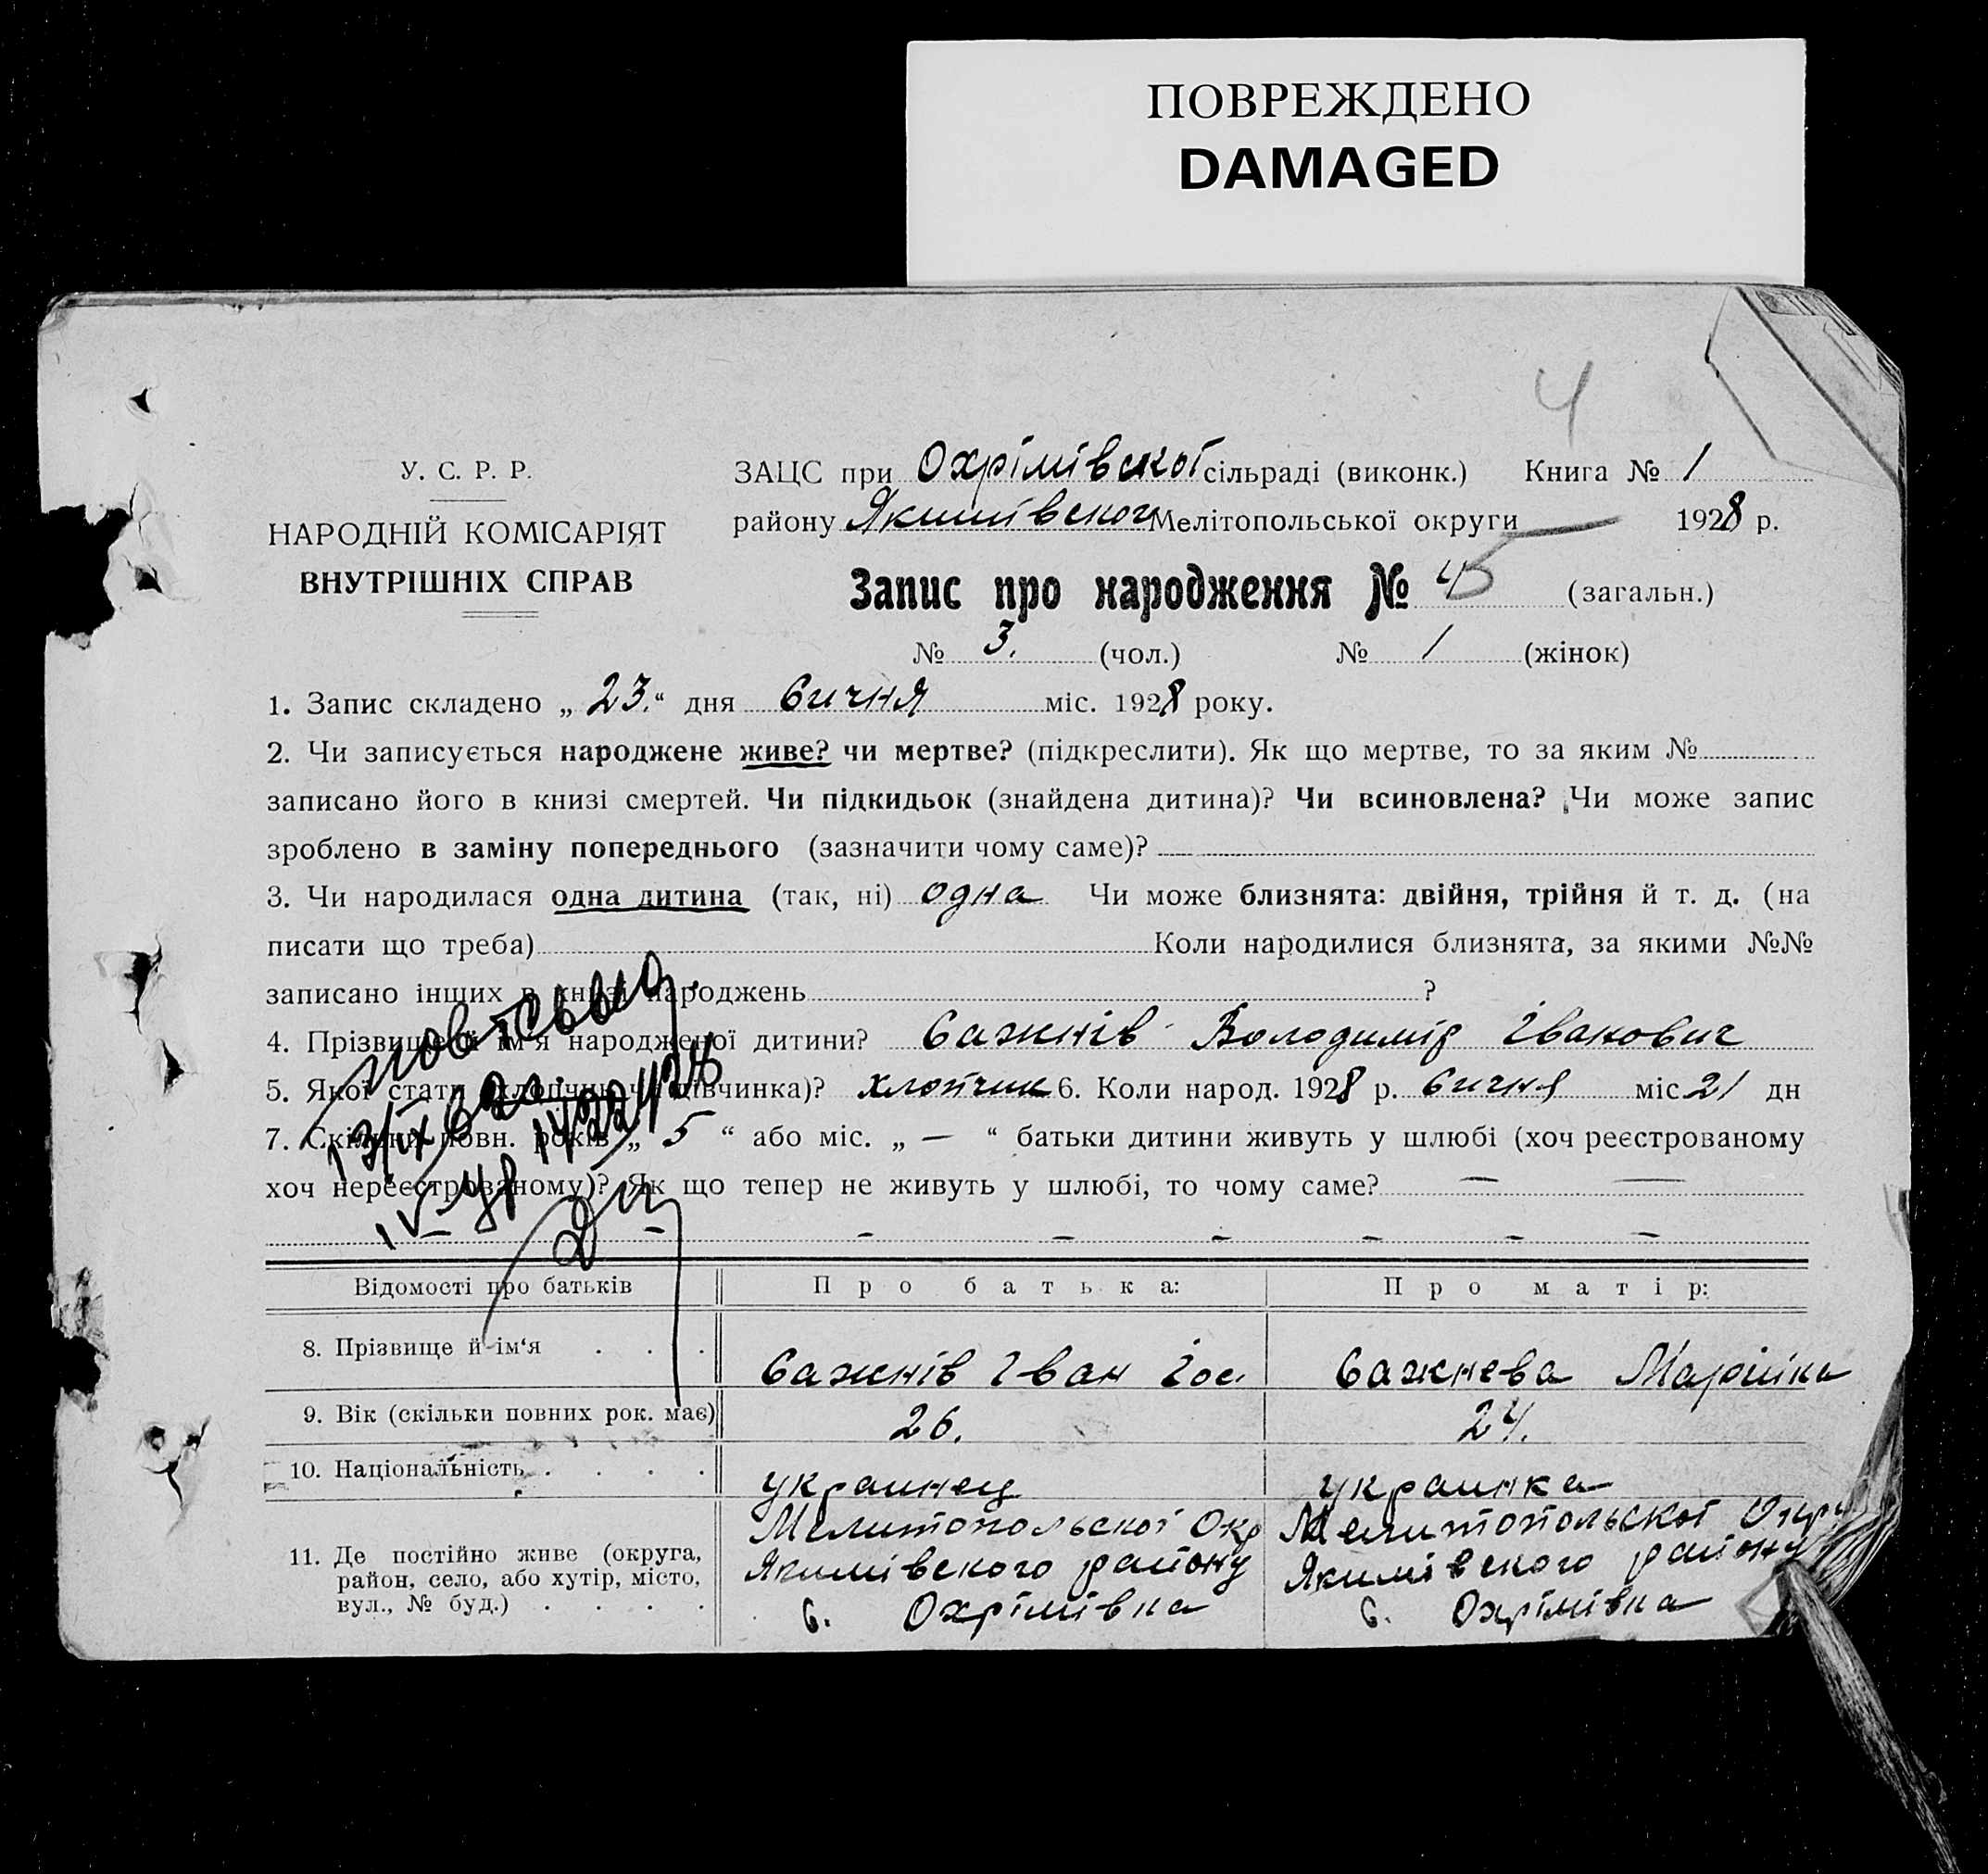 ПОВРЕЖДЕНО
DAMAGED
4
У. С. Р. Р.
НАРОДНІЙ КОМІСАРІЯТ
ВНУТРІШНІХ СПРАВ
ЗАЦС при Охрімівської сільраді (виконк.) Книга № 1
району Якимівского Мелітопольської округи 1928 р.
Запис про народження № (загальн.)
№ 3. (чол.) № 1 (жінок)
1. Запис складено „ 23. “ дня Сичня міс. 1928 року.
2. Чи записується народжене живе? чи мертве? (підкреслити). Як що мертве, то за яким №
записано його в книзі смертей. Чи підкидьок (знайдена дитина)? Чи всиновлена? Чи може запис
зроблено в заміну попереднього (зазначити чому саме)? —
3. Чи народилася одна дитина (так, ні) одна Чи може близнята: двійня, трійня й т. д. (на
писати що треба) Коли народилися близнята, за якими №№
записано інших в книзі народжень ?
4. Прізвище й ім'я народженої дитини? Сажнів Володимір Іванович
5. Якої статі (хлопчик чи дівчинка)? хлопчик 6. Коли народ. 1928 р. Сичня міс 21 дн
7. Скільки повн. років „ 5 “ або міс. „ — “ батьки дитини живуть у шлюбі (хоч реєстрованому
хоч нереєстрованому)? Як що тепер не живуть у шлюбі, то чому саме? — —
– – – – – – –
Відомості про батьків Про батька: Про матір:
8. Прізвище й ім‘я . . . Сажнів Іван Іос. Сажнева Марійка
9. Вік (скільки повних рок. має) 26. 24.
10. Національність . . . . украинец украинка
11. Де постійно живе (округа,
район, село, або хутір, місто,
вул., № буд.) . . . .
Мелитопольскої Окр
Якимівского району
с. Охрімівка
Мелитопольскої Окру
Якимівского району
с. Охрімівка